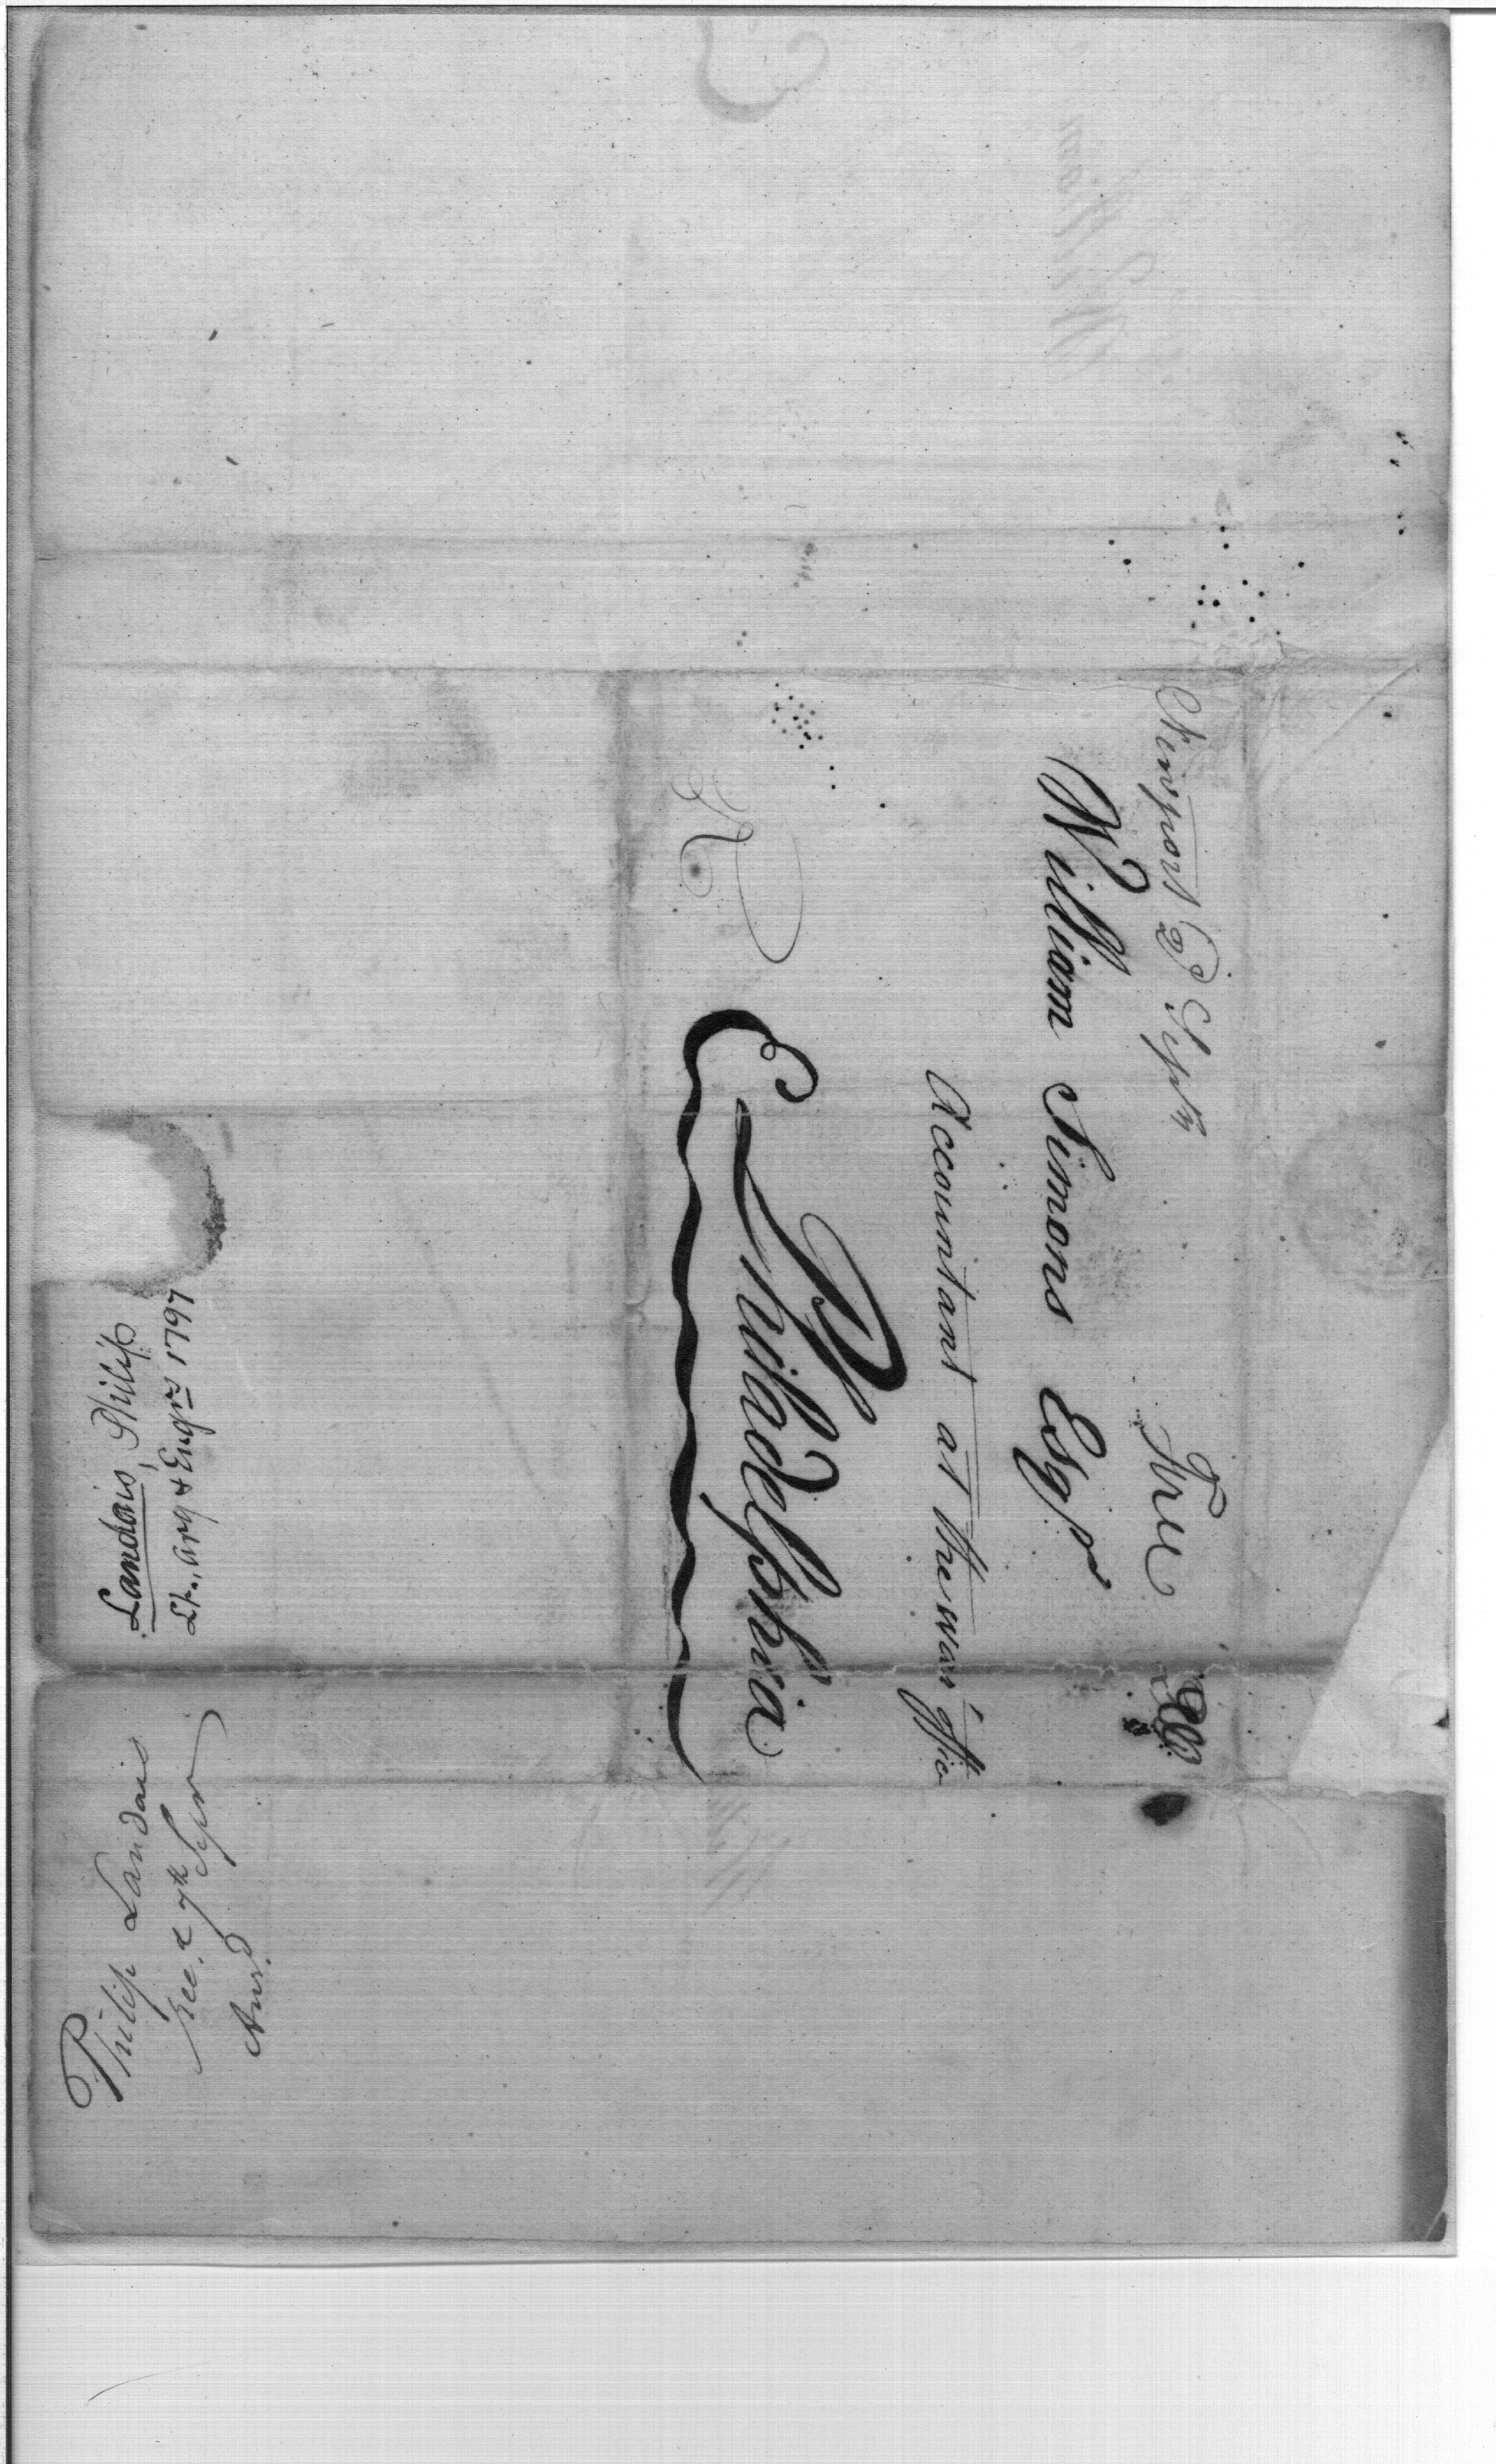 Newport 2 Septr
Free
William Simons Esqr
Accountant at the war office
Philadelphia
Landais, Philip
Lt., Arty & Engrs 1797
Philip Landais
Rec.d 7th Sepr
Ansd.